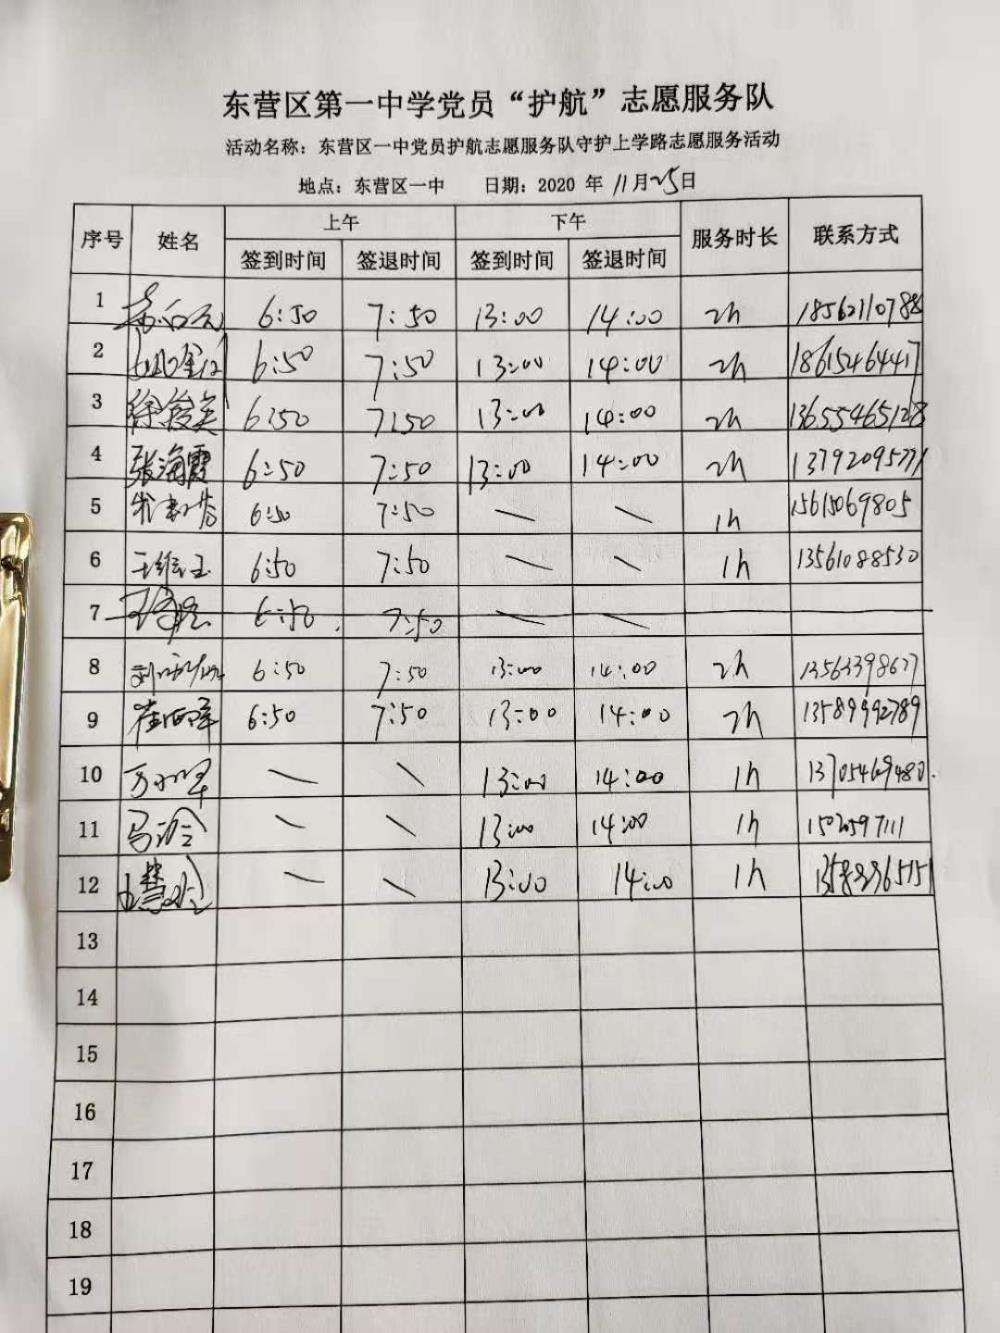 东营区第一中学党员“护航”志愿服务队
活动名称：东营区一中党员护航志愿服务队守护上学路志愿服务活动
地点：东营区一中 日期：2020 年 11月25日
序号 姓名 上午 下午 服务时长 联系方式
签到时间 签退时间 签到时间 签退时间
1 6:50 7:50 13:00 14:00 2h 18562110788
2 6:50 7:50 13:00 14:00 2h 18615464417
3 徐俊英 6:50 7:50 13:00 14:00 2h 13655465128
4 张海霞 6:50 7:50 13:00 14:00 2h
5 6:50 7:50 — — 1h 15615069805
6 6:50 7:50 — — 1h 13561088530
7 6:50 7:50 — —
8 6:50 7:50 13:00 14:00 2h 13563398677
9 6:50 7:50 13:00 14:00 2h 13589992789
10 — — 13:00 14:00 1h 13705469480
11 — — 13:00 14:00 1h
12 — — 13:00 14:00 1h
13
14
15
16
17
18
19